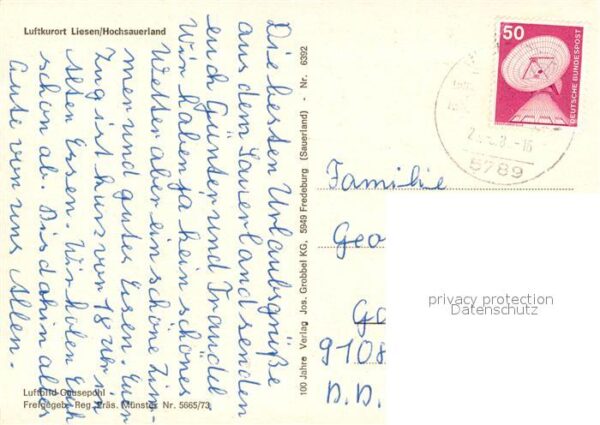 Luftkurort Liesen/Hochsauerland
Die besten Urlaubsgrüße
aus dem Sauerland senden
euch Günter und Traudel.
Wir haben ja kein schönes
Wetter aber ein schöne Zim-
mer und gutes Essen. Euer
Zug ist kurz vor 18 Uhr in
Alten Essen. Wir holen Euch
schon ab. Bis dahin alles
Gute von uns Allen.
Luftbild-Gausepohl
Freigegeb. Reg. Präs. Münster Nr. 5665/73
100 Jahre Verlag Jos. Grobbel KG, 5949 Fredeburg (Sauerland) - Nr. 6392
50
DEUTSCHE BUNDESPOST
5789
Familie
Geo
9108
D.D.
privacy protection
Datenschutz